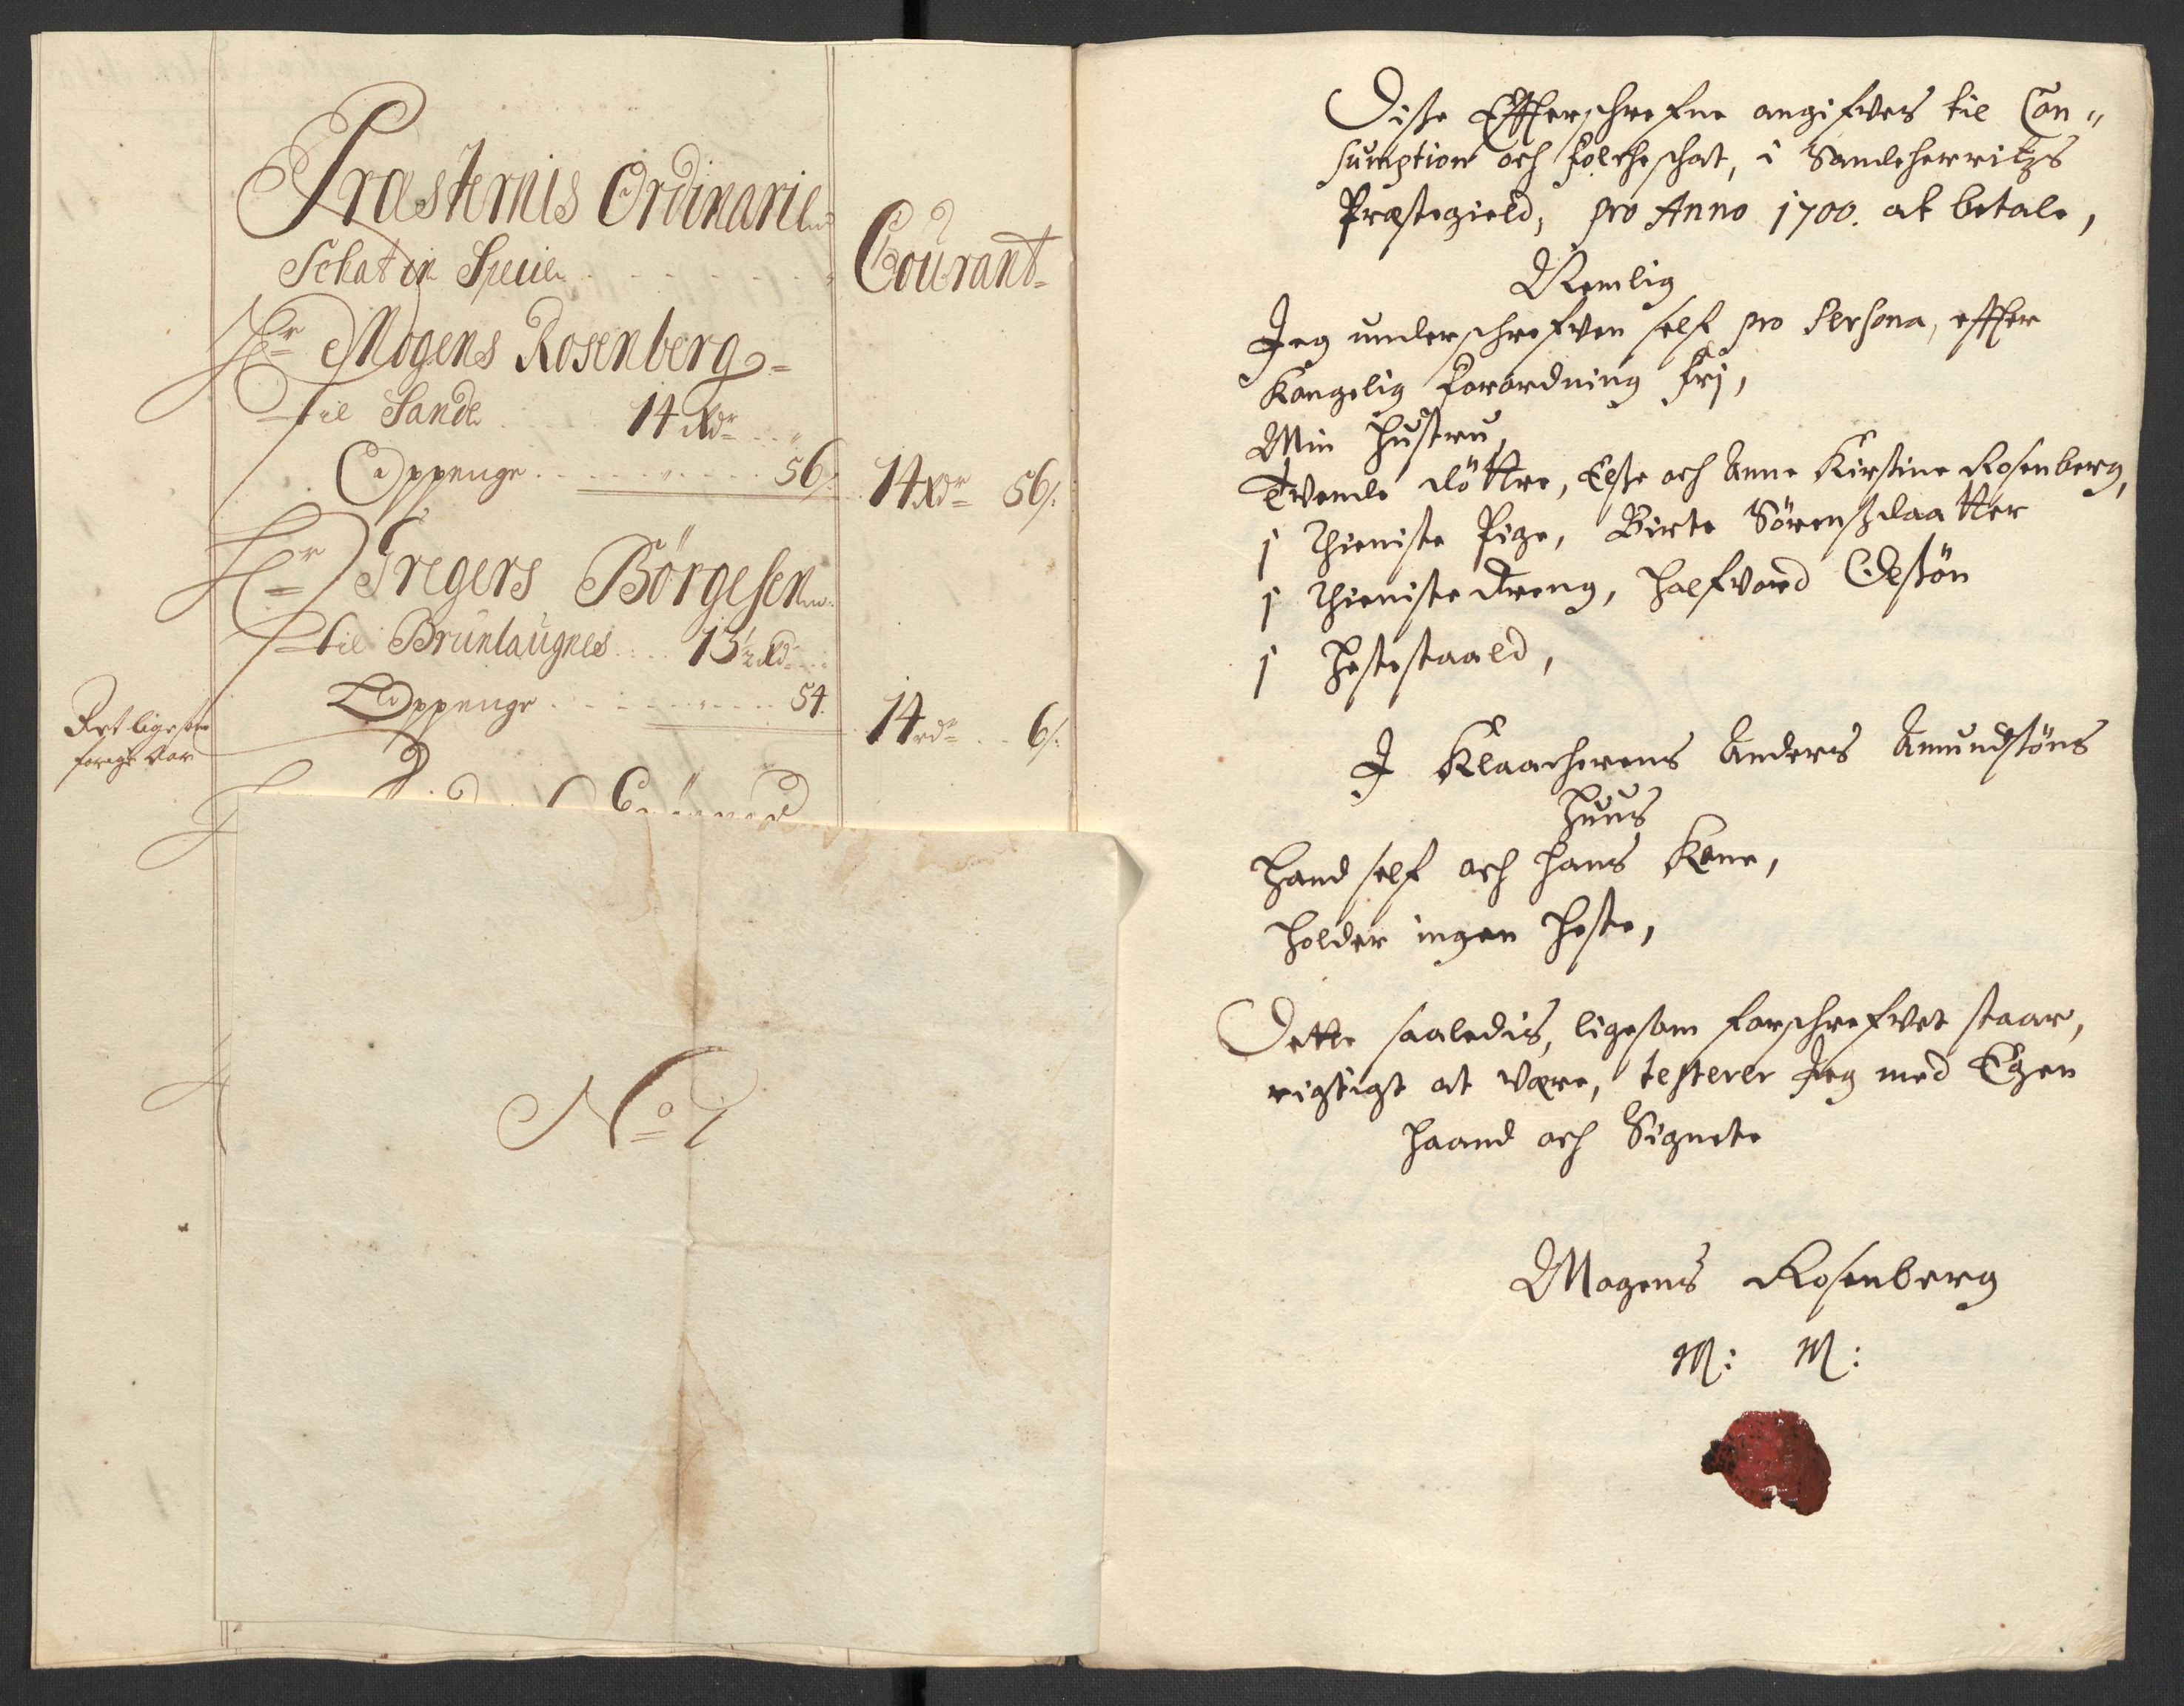 Præsternis Ordinarie
Schat in Specie
Courant
Hr Mogens Rosenberg
til Sande 14 Rdr
Oppenge 56
14 Rdr 56 s:
Hr Gregers Börgesen
til Brunlaugnes 13½ Rdr
Oppenge 54
14 rdr 6 s:
Ret lige som
forige Aar
No 1
Disse Effterschrefne angifves til Con„
sumption och folcheschat, i Sandeherritzs
Præstegield, pro Anno 1700. at betale,
Nemlig
Jeg underschrefven self pro Persona, effter
Kongelig forordning frj,
Min Hustru,
Tvende döttre, Else och Anne Kirstine Rosenberg,
1 Thieniste Pige, Birte Sörenszdaatter
1 Thieniste dreng, Halfvord Olsön
1 Hestestaald,
I Klaacherens Anders Amundsöns
Huus
Hand self och hans Kone,
Holder ingen Heste,
Dette saaledis, ligesom forschrefvet staar,
rigtigt at være, testerer Jeg med Egen
Haand och Signete
Mogens Rosenberg
M: M: